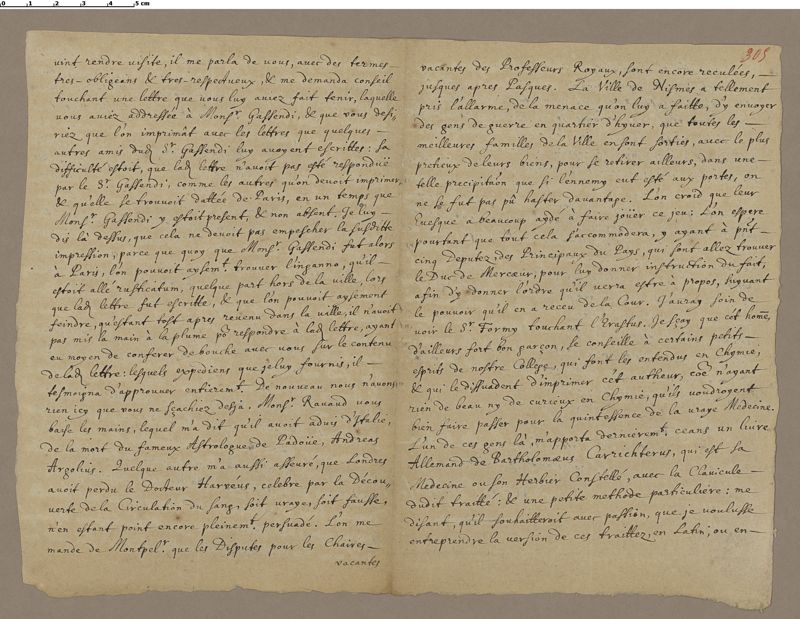 0 1 2 3 4 5 cm
305
vint rendre visite, il me parla de vous, avec des termes
tres-obligeans & tres-respectueux, & me demanda conseil
touchant une lettre que vous luy aviez fait tenir, laquelle
vous aviez addressée à Monsr. Gassendi, & que vous desi-
riéz que l'on imprimât avec les lettres que quelques
autres amis dud. Sr. Gassendi luy avoyent escrittes: sa
difficulté estoit, que lad. lettre n'avoit pas esté responduë
par le Sr. Gassendi, comme les autres qu'on devoit imprimer,
& qu'elle se trouvoit dattée de Paris, en un temps que
Monsr. Gassendi y estoit present, & non absent. Je luy
dis là dessus, que cela ne devoit pas empescher la susditte
impression; parce que quoy que Monsr. Gassendi fut alors
à Paris, l'on pouvoit aysemt. trouver l'inganno, qu'il
estoit allé rusticatum, quelque part hors de la ville, lors
que lad. lettre fut escritte, & que l'on pouvoit aysement
feindre, qu'estant tost apres revenu dans la ville, il n'avoit
pas mis la main à la plume pr. respondre à lad. lettre, ayant
eu moyen de conferer de bouche avec vous sur le contenu
de lad. lettre: lesquels expediens que je luy fournis, il
tesmoigna d'approuver entieremt. De nouveau nous n'avons
rien icy que vous ne sçachiez desjà. Monsr. Ravaud vous
baise les mains, lequel m'a dit qu'il avoit advis d'Italie,
de la mort du fameux Astrologue de Padoüe, Andreas
Argolus. Quelque autre m'a aussi asseuré, que Londres
avoit perdu le Docteur Harveus, celebre par la Décou-
verte de la Circulation du sang, soit vraye, soit fausse,
n'en estant point encore pleinemt. persuadé. L'on me
mande de Montpelr. que les Disputes pour les Chaires
vacantes
vacantes des Professeurs Royaux, sont encore reculées,
jusques apres Pasques. La Ville de Nismes a tellement
pris l'allarme, de la menace qu'on luy a faitte, d'y envoyer
des gens de guerre en quartier d'hyver, que toutes les
meilleures familles de la Ville en sont sorties, avec le plus
pretieux de leurs biens, pour se retirer ailleurs, dans une
telle precipitãon que si l'ennemy eut esté aux portes, on
ne se fut pas pû haster davantage. L'on croid que leur
Evesque a beaucoup aydé à faire joüer ce jeu: L'on espere
pourtant que tout cela s'accommodera, y ayant à pñt
cinq Deputez des Principaux du Pays, qui sont allez trouver
le Duc de Mercœur, pour luy donner instruction du fait,
afin d'y donner l'ordre qu'il verra estre à propos, suyvant
le pouvoir qu'il en a receu de la Cour. J'auray soin de
voir le Sr. Formy touchant l'Erastus. Je sçay que cét homẽ,
d'ailleurs fort bon garçon, se conseille à certains petits
esprits de nostre College, qui font les entendus en Chymie,
& qui le dissuadent d'imprimer cét autheur, coẽ n'ayant
rien de beau ny de curieux en Chymie, qu'ils voudroyent
bien faire passer pour la quintessence de la vraye Medecine.
L'un de ces gens là, m'apporta dernieremt. ceans un livre
Allemand de Bartholomæus Carrichterus, qui est sa
Medecine ou son Herbier Constellé, avec la Clavicule
dudit traitté: & une petite methode particuliere: me
disant, qu'il souhaitteroit avec passion, que je voulusse
entreprendre la version de ces traittez, en Latin; ou en-